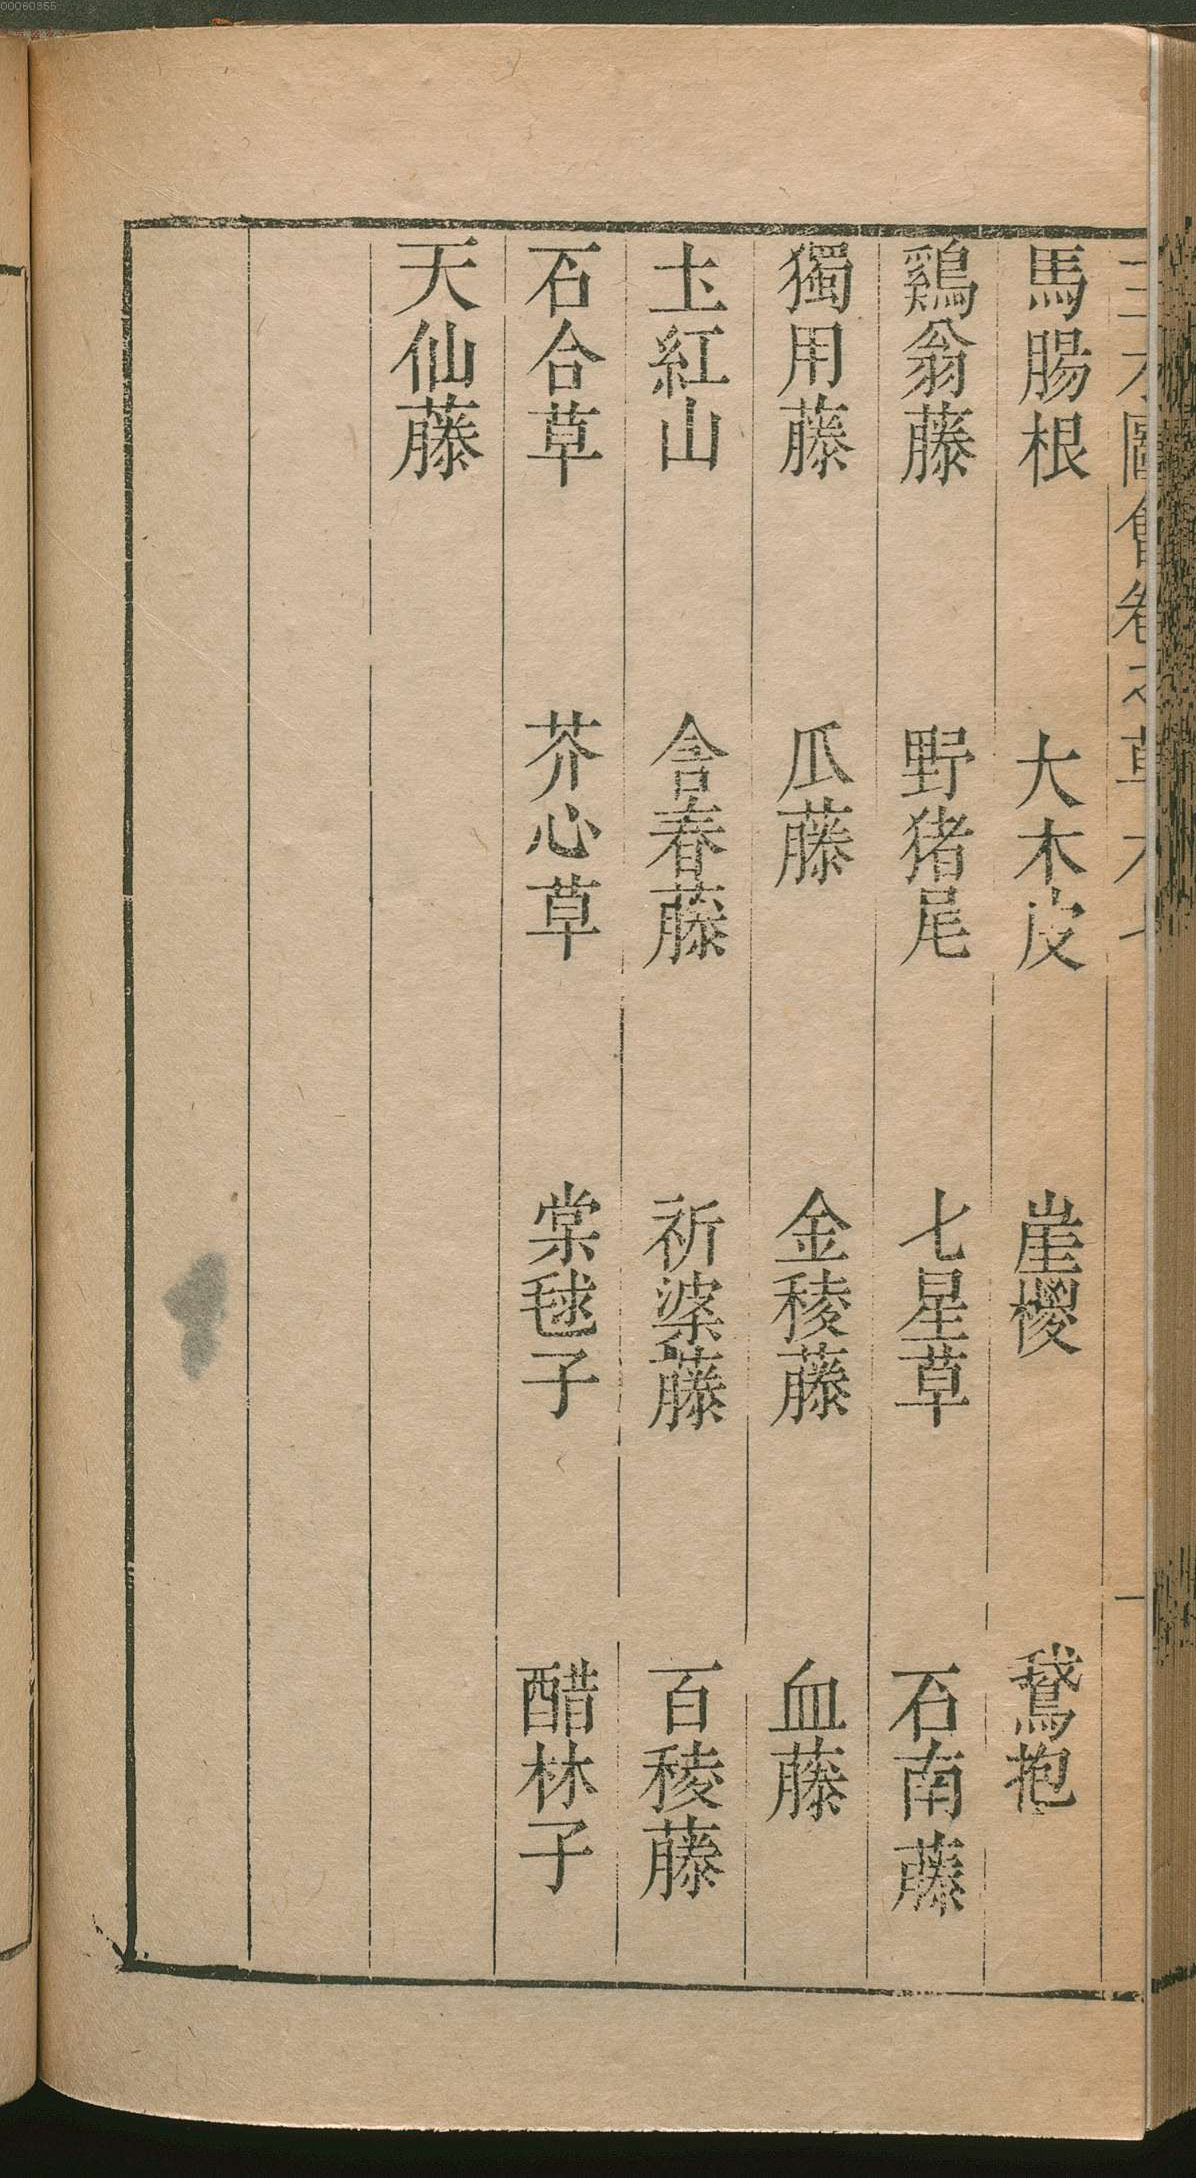 00060355
馬腸根 大木皮 崖椶 鵞抱
鷄翁藤 野猪尾 七星草 石南藤
獨用藤 瓜藤 金稜藤 血藤
𡈽紅山 含春藤 祈婆藤 百稜藤
石合草 芥心草 棠毬子 醋林子
天仙藤